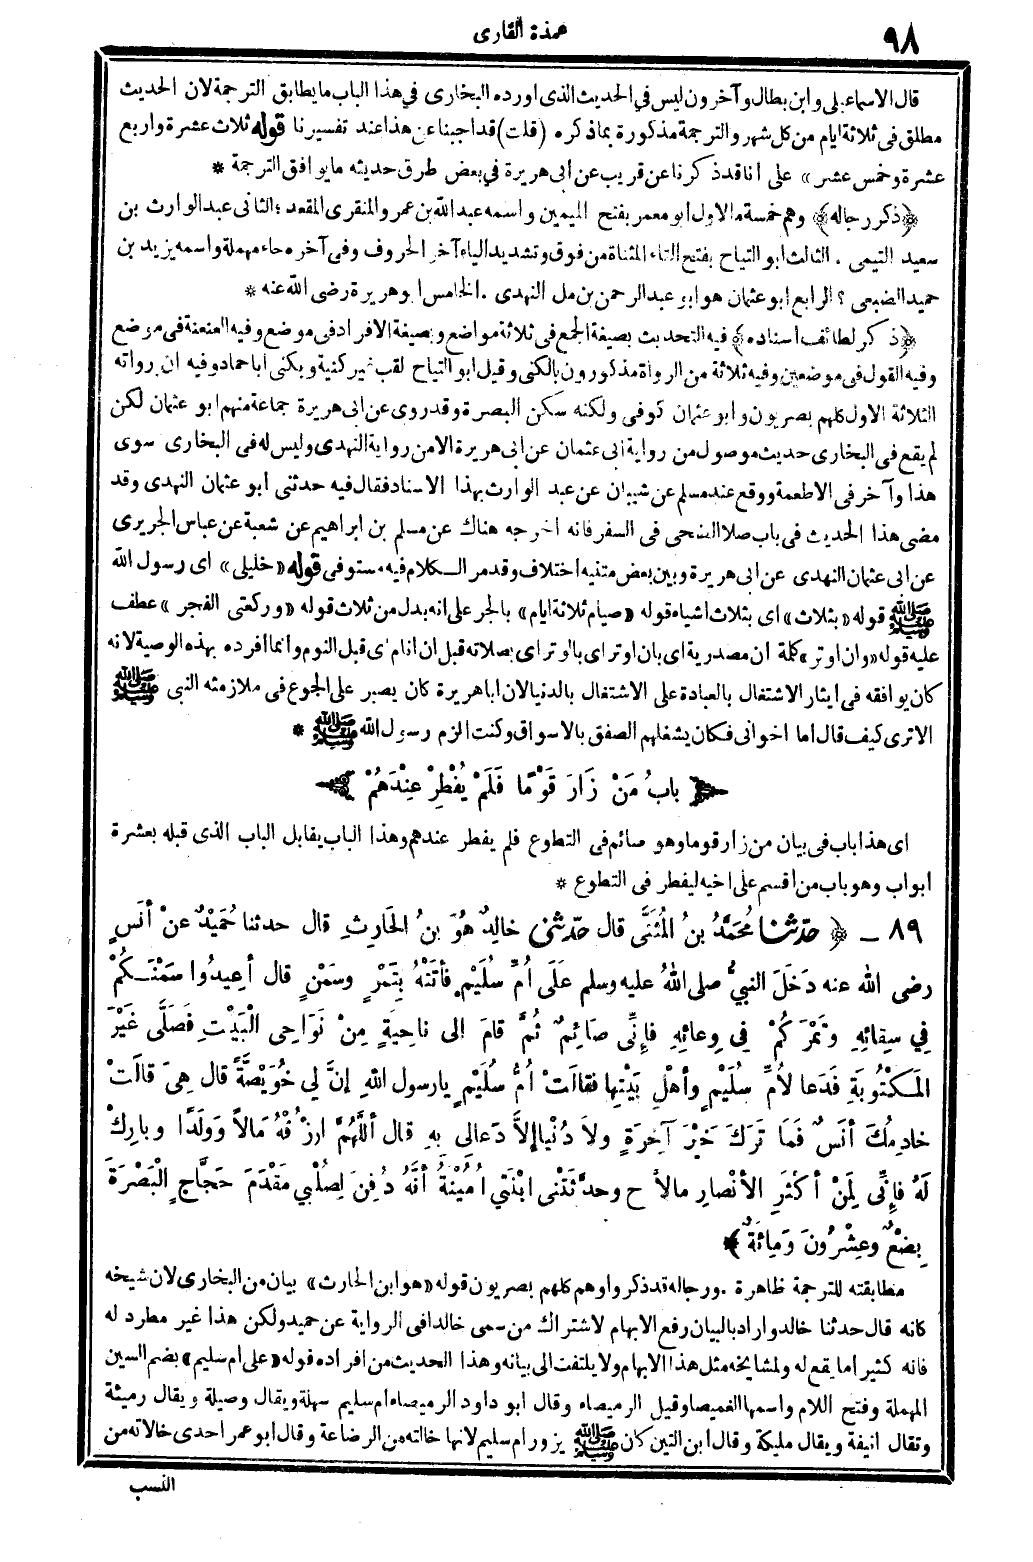 ٩٨
عمدة القارى
قال الاسماعيلى وابن بطال وآخرون ليس فى الحديث الذى اورده البخارى فى هذا الباب ما يطابق الترجمة لان الحديث
مطلق فى ثلاثة ايام من كل شهر والترجمة مذكورة بما ذكره (قلت) قد اجبنا عن هذا عند تفسيرنا قوله ثلاث عشرة واربع
عشرة وخمس عشر» على انا قد ذكرنا عن قريب عن ابى هريرة فى بعض طرق حديثه ما يوافق الترجمة *
﴿ذكر رجاله﴾ وهم خمسة. الاول ابو معمر بفتح الميمين واسمه عبد الله بن عمرو المنقرى المقعد: الثانى عبد الوارث بن
سعيد التيمى . الثالث ابو التياح بفتح التاء المثناة من فوق وتشديد الياء آخر الحروف وفى آخره حاء مهملة واسمه يزيد بن
حميد الضبعى ؟ الرابع ابو عثمان هو ابو عبد الرحمن بن مل النهدى . الخامس ابو هريرة رضى الله عنه *
﴿ذكر لطائف اسناده﴾ فيه التحديث بصيغة الجمع فى ثلاثة مواضع وبصيغة الافراد فى موضع وفيه العنعنة فى موضع
وفيه القول فى موضعين وفيه ثلاثة من الرواة مذكورون بالكنى وقيل ابو التياح لقب غير كنية ويكنى ابا حماد وفيه ان رواته
الثلاثة الاول كلهم بصريون وابو عثمان كوفى ولكنه سكن البصرة وقد روى عن ابى هريرة جماعة منهم ابو عثمان لكن
لم يقع فى البخارى حديث موصول من رواية ابى عثمان عن ابى هريرة الا من رواية النهدى وليس له فى البخارى سوى
هذا وآخر فى الاطعمة ووقع عند مسلم عن شيبان عن عبد الوارث بهذا الاسناد فقال فيه حدثنى ابو عثمان النهدى وقد
مضى هذا الحديث فى باب صلاة الضحى فى السفر فانه اخرجه هناك عن مسلم بن ابراهيم عن شعبة عن عباس الجريرى
عن ابى عثمان النهدى عن ابى هريرة وبين بعض متنيه اختلاف وقد مر الكلام فيه مستوفى قوله «خليلى» اى رسول الله
ﷺ قوله «بثلاث» اى بثلاث اشياء قوله «صيام ثلاثة ايام» بالجر على انه بدل من ثلاث قوله «وركعتى الفجر» عطف
عليه قوله «وان اوتر» كلمة ان مصدرية اى بان اوتر اى بالوتر اى بصلاته قبل ان انام اى قبل النوم وانما افرده بهذه الوصية لانه
كان يوافقه فى ايثار الاشتغال بالعبادة على الاشتغال بالدنيا لان ابا هريرة كان يصبر على الجوع فى ملازمته النبى ﷺ
الا ترى كيف قال اما اخوانى فكان يشغلهم الصفق بالاسواق وكنت الزم رسول الله ﷺ *
بابُ مَنْ زَارَ قَوْمًا فَلَمْ يُفْطِرْ عِنْدَهُمْ
اى هذا باب فى بيان من زار قوما وهو صائم فى التطوع فلم يفطر عندهم وهذا الباب يقابل الباب الذى قبله بعشرة
ابواب وهو باب من اقسم على اخيه ليفطر فى التطوع *
٨٩ ـ ﴿ حدّثنا مُحَمَّدُ بنُ الْمُثَنَّى قال حدّثنى خالِدٌ هُوَ بنُ الحَارِثِ قال حدثنا حُمَيْدٌ عنْ أَنَسٍ
رضى الله عنه دَخَلَ النبيُّ صلى اللهُ عليه وسلم عَلَى أُمِّ سُلَيْمٍ فأَتَتْهُ بِتَمْرٍ وسَمْنٍ قال أعِيدُوا سَمْنَكُمْ
فِي سِقائِهِ وتَمْرَكُمْ فِي وِعائِهِ فإِنِّى صَائِمٌ ثُمَّ قامَ الى ناحِيةٍ مِنْ نَوَاحِى الْبَيْتِ فَصَلَّى غَيْرَ
المَكْتُوبَةِ فَدَعا لأُمِّ سُلَيْمٍ وأهْلِ بَيْتِها فقالَتْ أُمُّ سُلَيْمٍ يارسول اللهِ إنَّ لي خُوَيْصَّةً قال هِىَ قالَتْ
خادِمُكَ أنَسٌ فَما تَرَكَ خَيْرَ آخِرَةٍ ولاَ دُنْيا إلاَّ دَعا لِى بِهِ قال أللَّهُمَّ ارْزُقْهُ مَالاً وَوَلَدًا وبارِكْ
لَهُ فإِنِّى لَمِنْ أكْثَرِ الأنْصارِ مالاً ح وحدَّثَتْنى ابْنَتِي أُمَيْنَةُ أنَّهُ دُفِنَ لِصُلْبِي مَقْدَمَ حَجَّاجٍ الْبَصْرَةَ
بِضْعٌ وعِشْرُونَ وَمِائَةٌ ﴾ *
مطابقته للترجمة ظاهرة . ورجاله قد ذكروا وهم كلهم بصريون قوله «هو ابن الحارث» بيان من البخارى لان شيخه
كانه قال حدثنا خالد واراد بالبيان رفع الابهام لاشتراك من سمى خالدا فى الرواية عن حميد ولكن هذا غير مطرد له
فانه كثيرا ما يقع له ولمشايخه مثل هذا الابهام ولا يلتفت الى بيانه وهذا الحديث من افراده قوله «على ام سليم» بضم السين
المهملة وفتح اللام واسمها الغميصا وقيل الرميصاء وقال ابو داود الرميصاء ام سليم سهلة ويقال وصيلة ويقال رميثة
وتقال انيفة ويقال مليكة وقال ابن التين كان ﷺ يزور ام سليم لانها خالته من الرضاعة وقال ابو عمر احدى خالاته من
النسب